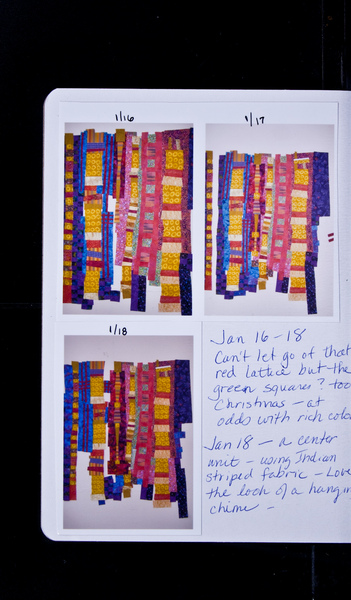 1/16
1/17
1/18
Jan 16 - 18
Can't let go of that
red lattice but the
green squares? too
Christmas - at
odds with rich color
Jan 18 - a center
unit - using Indian
striped fabric - Love
the look of a hangin
chime -